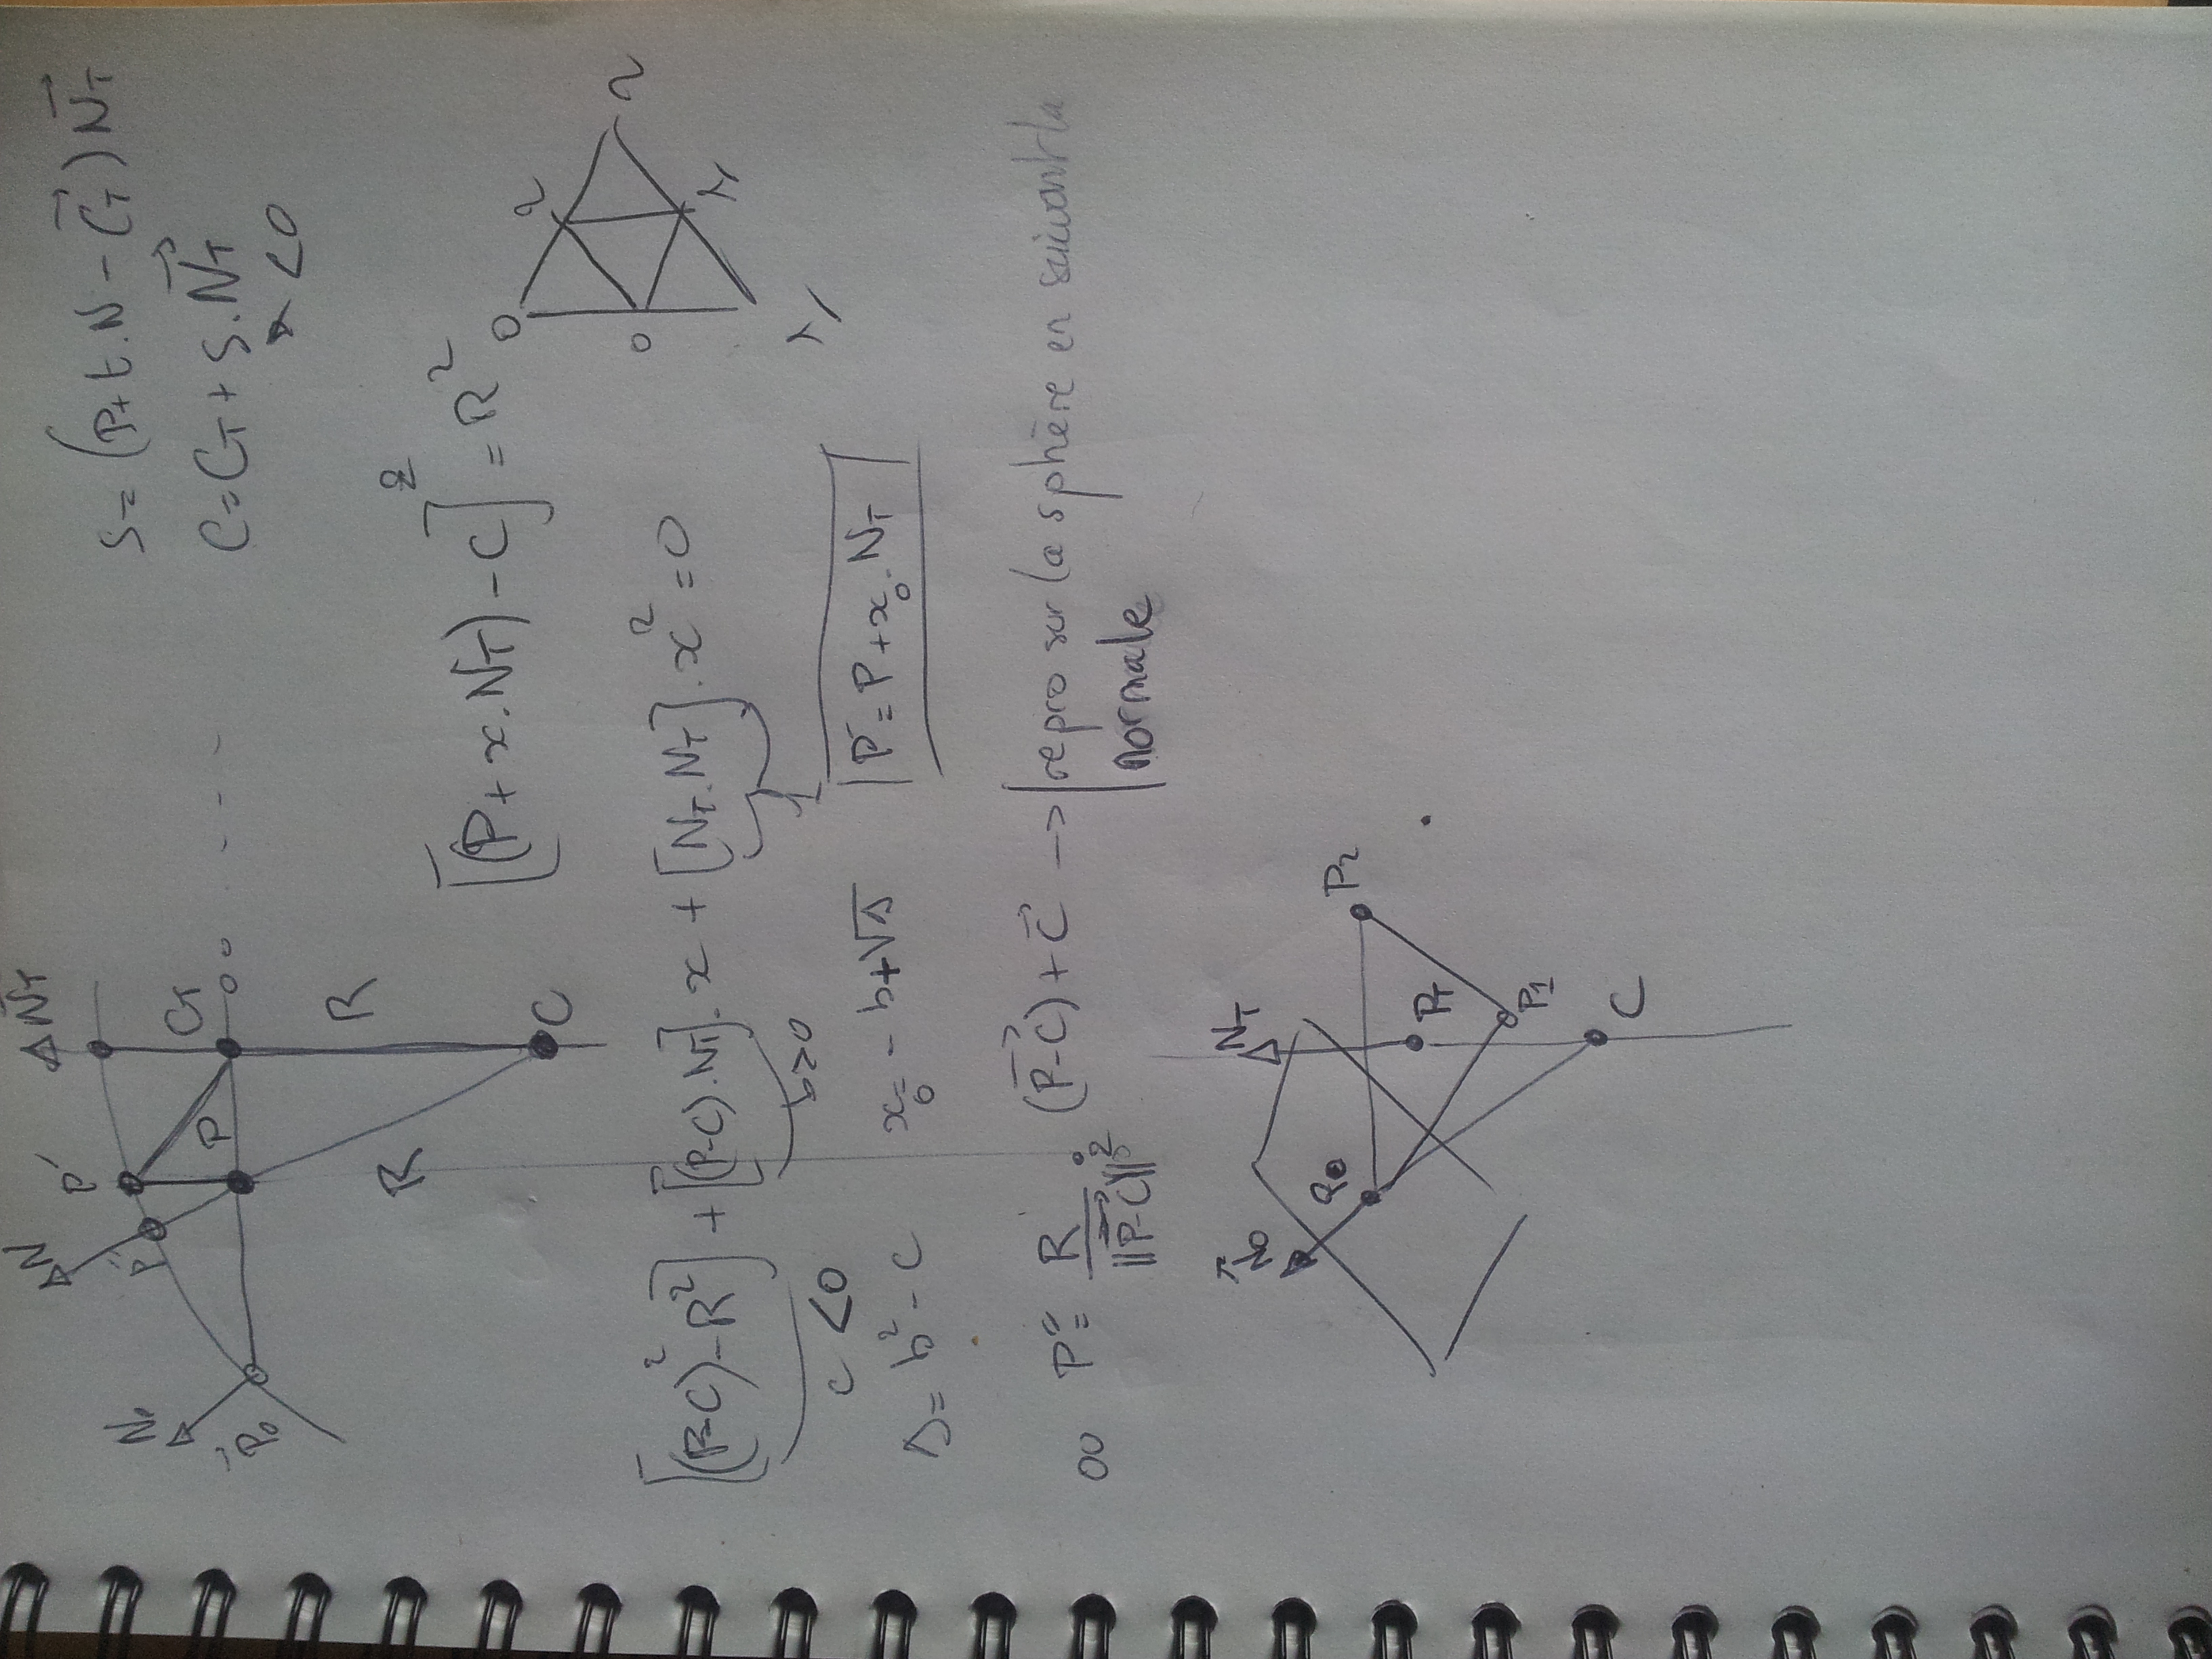 N₀
P₀'
N
P''
P'
N⃗T
P
CT
R
R
C
S = (P + t.N - C⃗T) N⃗T
C = CT + S.N⃗T
< 0
[(P + x.NT) - C]² = R²
[(P-C)² - R²] + [(P-C).NT].x + [NT.NT].x² = 0
c < 0
b ≥ 0
1
Δ = b² - c
x₀ = - b + √Δ
P' = P + x₀.NT
0
0
1
1
2
2
ou P'' = R / ||P-C||² (P-C) + C → repro sur la sphère en suivant la
normale
N⃗₀
P₀
NT
PT
P₁
P₂
C